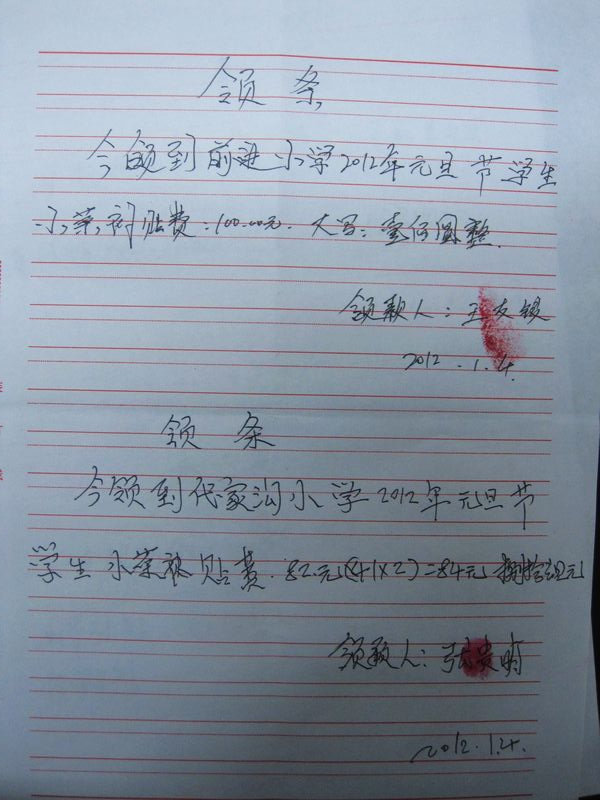 领条
今领到前进小学2012年元旦节学生
小菜补贴费:100.00元.大写:壹佰圆整.
领款人:王友银
2012.1.4.
领条
今领到代家沟小学2012年元旦节
学生小菜补贴费.82元(41×2)=84元 捌拾
领款人:张贵明
2012.1.4.